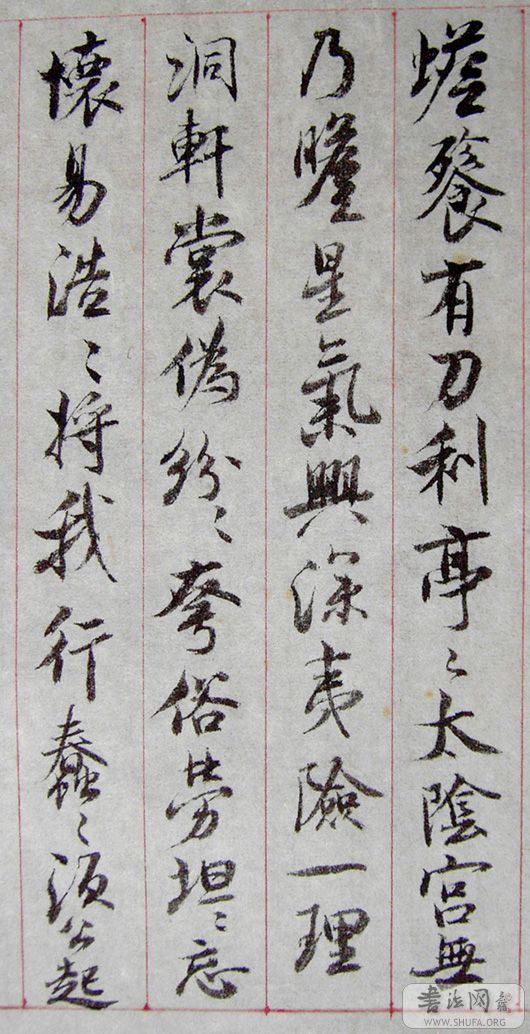 蟾餮有刀利亭〻太陰宫無
乃瞻星氣興深夷險一理
洞軒裳偽紛〻夸俗勞坦〻忘
懷易浩〻将我行蠢〻須公起
書法网
WWW.SHUFA.ORG